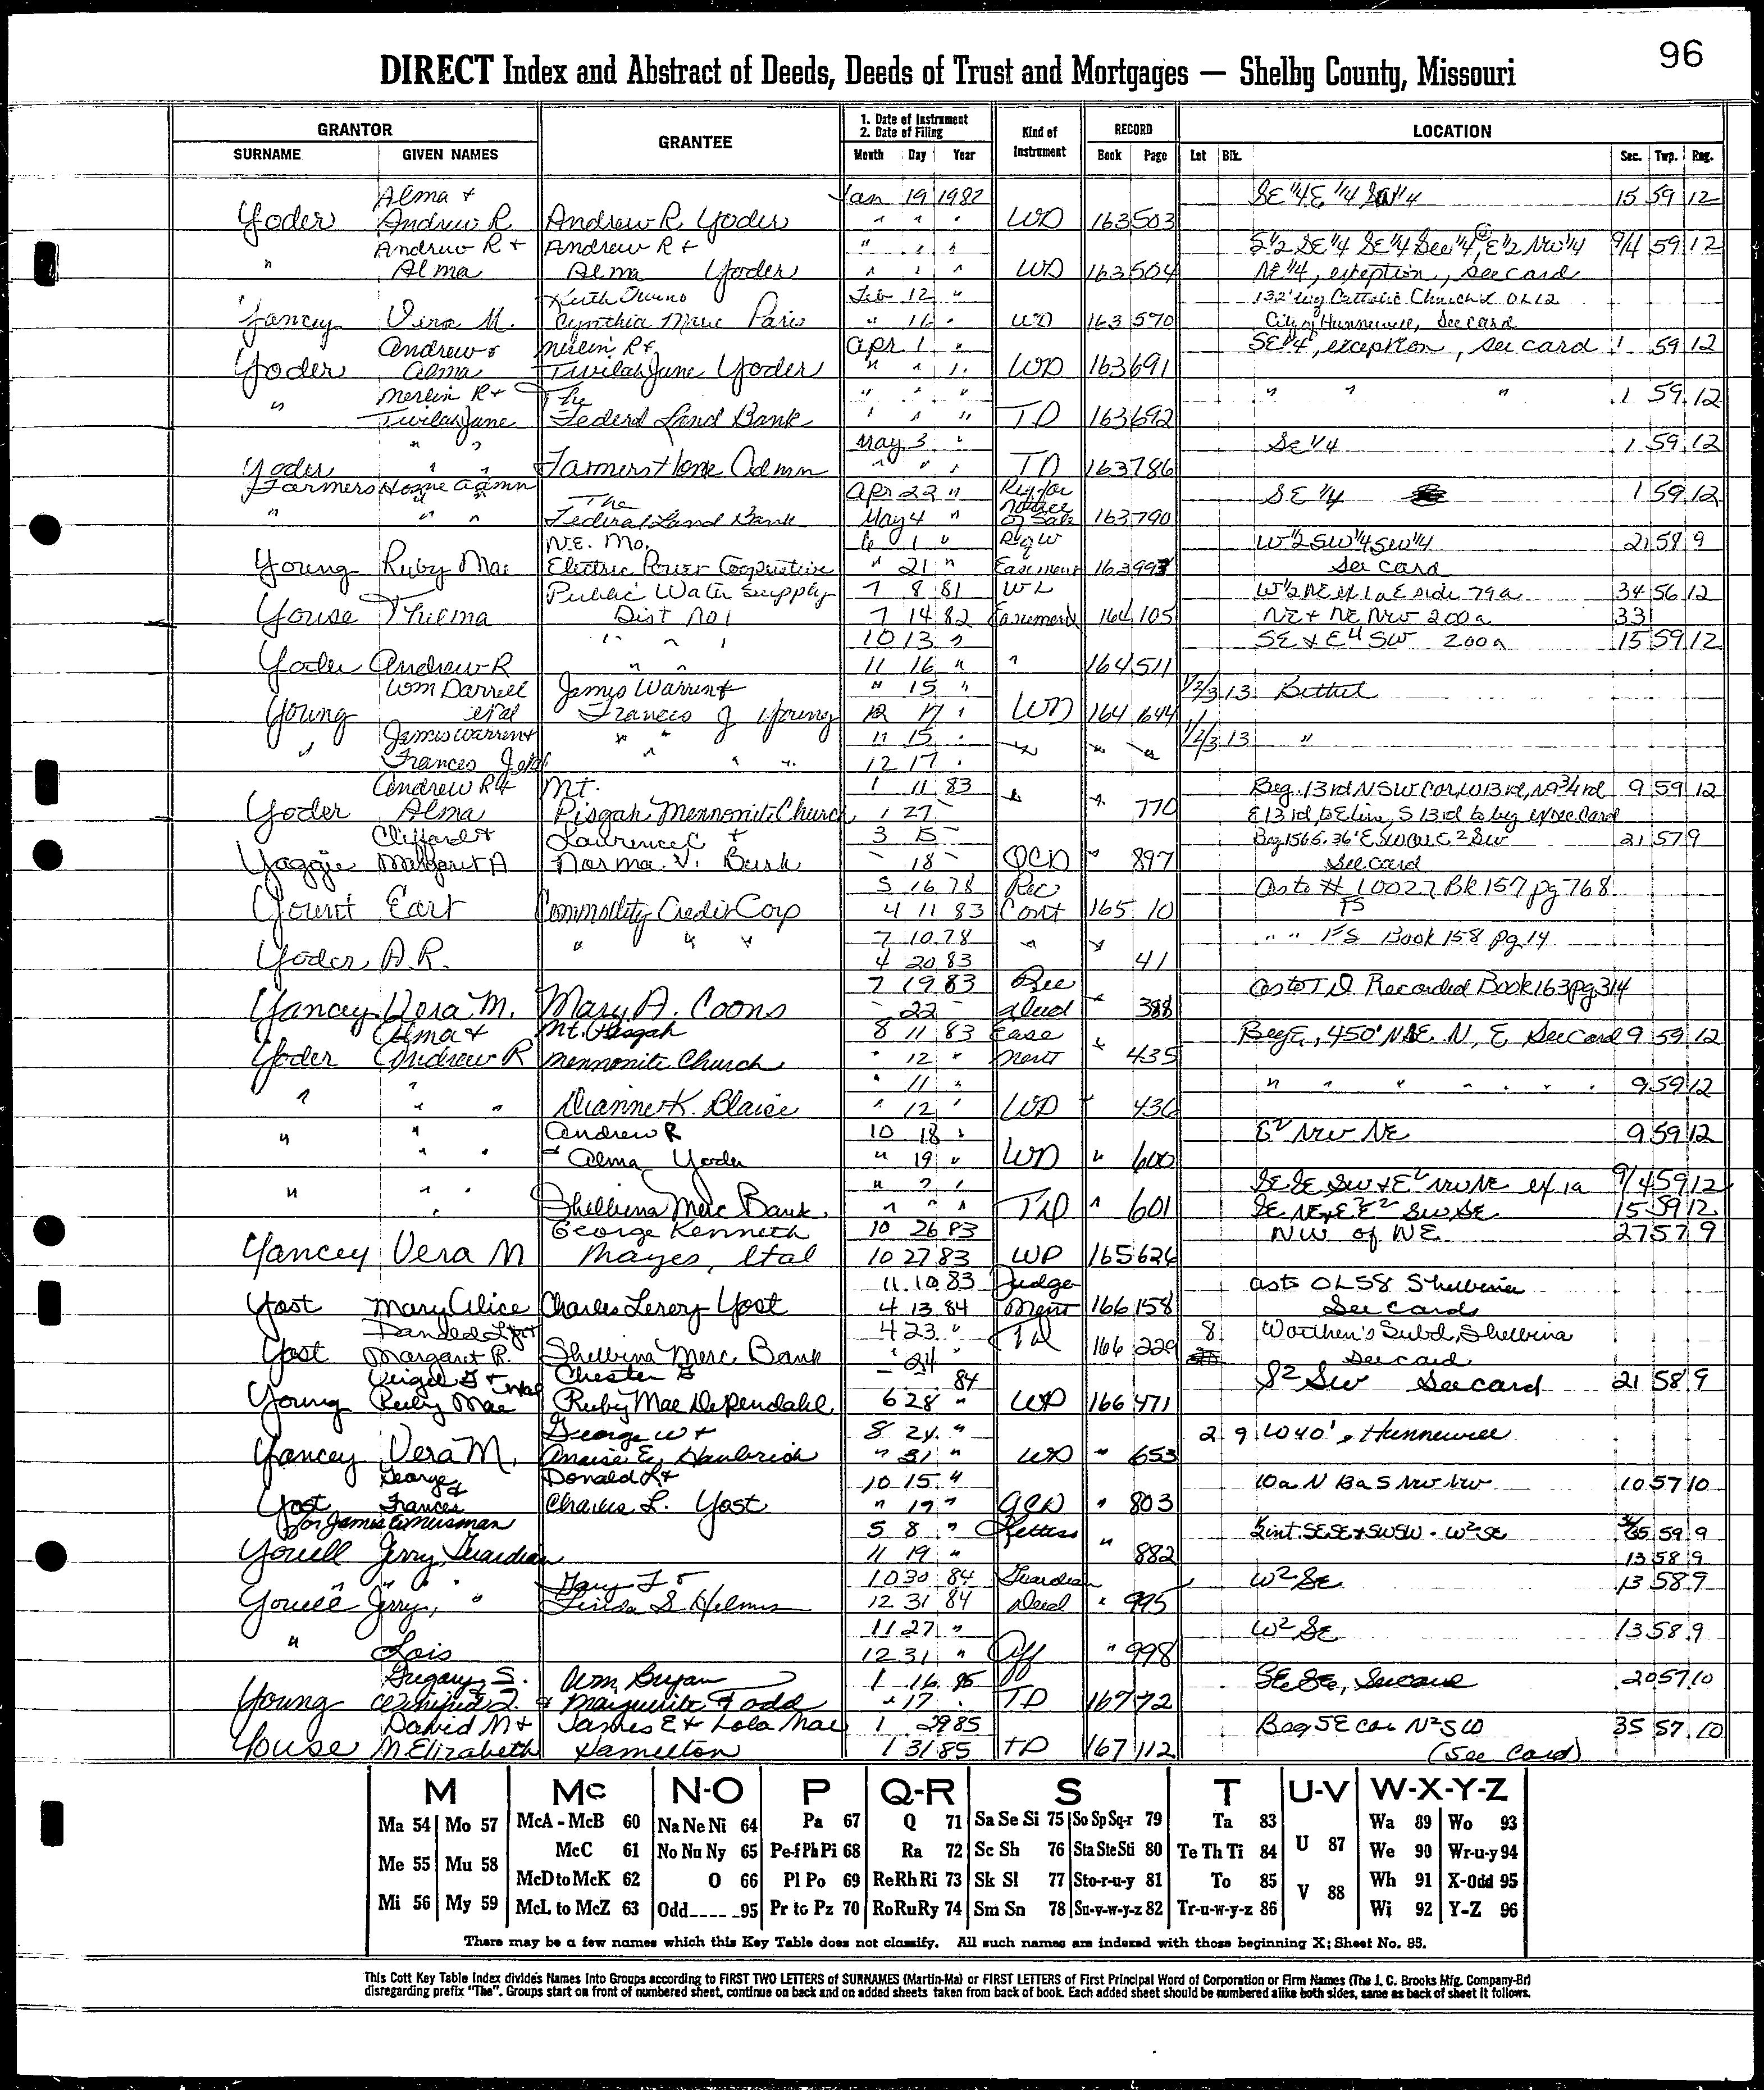 96
DIRECT Index and Abstract of Deeds, Deeds of Trust and Mortgages — Shelby County, Missouri
GRANTOR GRANTEE 1. Date of Instrument 2. Date of Filing Kind of Instrument RECORD LOCATION
SURNAME GIVEN NAMES Month Day Year Book Page Lot Blk. Sec. Twp. Rng.
Alma + Jan 19 1982 15 59 12
Yoder Andrew R Andrew R Yoder " " " WD 163 503
Andrew R + Andrew R + " " " S 1/2 SE 1/4 SE 1/4 E 1/2 NW 1/4 9/4 59 12
" Alma Alma Yoder " " " WD 163 504 NE 1/4, exception, see card
Keith Feb 12 " 132' Catholic Church OL 12
Yancey Vera M. Cynthia Marie " 16 " WD 163 570 City of Hunnewell, see card
Andrew & Merlin R + Apr 1 " SE 1/4, exception, see card 1 59 12
Yoder Alma Twilah June Yoder " " 1. WD 163 691
" Merlin R + The " " " " " " 1 59 12
Twilah June Federal Land Bank " " " TD 163 692
" " May 3 " SE 1/4 1 59 12
Yoder " " Farmers Home Admn " " " TD 163 786
Farmers Home Admn Apr 22 " Req for SE 1/4 1 59 12
" " " The Federal Land Bank May 4 " Notice of Sale 163 790
N.E. Mo. 6 1 " R of W W 1/2 SW 1/4 SW 1/4 21 58 9
Young Ruby Mae Electric Power Cooperative " 21 " Easement 163 993 See card
Public Water Supply 7 8 81 WL W 1/2 NE ex 1a E side 79a 34 56 12
Youse Thelma Dist No 1 7 14 82 Easement 164 105 NE + NE NW 200a 33
" " " 10 13 " 200a 15 59 12
Yoder Andrew R " " 11 16 " " 164 511
Wm Darrell James Warren + " 15 " 1/2/3 13 Bethel
Young et al Frances J Young 12 17 " WD 164 644
" James Warren + " " 11 15 " " " " 1/2/3 13 "
Frances J et al " " " 12 17 "
Andrew R + Mt. 1 11 83 Beg. 13rd N SW cor, W 13rd, N 9 3/4 rd 9 59 12
Yoder Alma Pisgah Mennonite Church 1 27 " " 770 E 13rd, to E line, S 13rd to beg see card
Clifford + Laurence C + 3 15 Beg 1565.36' E SW cor E2 SW 21 57 9
Yaggie Margaret A Norma V. Burk " 18 " QCD " 897 See card
5 16 78 Rec As to # 10027 Bk 157 pg 768
Yount Earl Commodity Credit Corp 4 11 83 Cont 165 10 FS
" " " 7 10 78 " " " " FS Book 158 pg. 14
Yoder A.R. 4 20 83 41
7 19 83 Rec As to TD Recorded Book 163 pg 314
Yancey Vera M. Mary A. Coons " 22 " Deed " 388
Alma + Mt. Pisgah 8 11 83 Ease See Card 9 59 12
Yoder Andrew R Mennonite Church " 12 " ment " 435
" " " 11 " " " " " " " 9 59 12
" " Dianne K. Blaise " 12 " WD " 436
" " Andrew R 10 18 " E2 NW NE 9 59 12
" " + Alma Yoder " 19 " WD " 600
" " " " " " SE SE SW + E2 NW NE ex 1a 9/4 59 12
" Shelbina Merc Bank " " " TD " 601 15 59 12
George Kenneth 10 26 83 NW of NE 27 57 9
Yancey Vera M Mayes, et al 10 27 83 WD 165 626
11 10 83 Judge As to OL 58 Shelbina
Yost Mary Alice Charles Leroy Yost 4 13 84 ment 166 158 See card
4 23 " TD 8 Worthen's Subd, Shelbina
Yost Margaret R. Shelbina Merc Bank " 24 " 166 229 See card
Virgil G + Chester G 84 S2 SW See card 21 58 9
Young Ruby Mae Ruby Mae DeRendahl 6 28 " WD 166 471
George W + 8 24 " 2 9 W 40', Hunnewell
Yancey Vera M. " 31 " WD " 653
George & Donald L + 10 15 " 10a N Ba S NW NW 10 57 10
Yost Frances Charles L. Yost " 17 " QCD " 803
for James 5 8 " Letters 35 59 9
Youell Jerry, Guardian 11 19 " " 882 13 58 9
" " Gary L + 10 30 84 Guardian W2 SE 13 58 9
Youell Jerry, " Linda S Helmes 12 31 84 Deed " 995
11 27 " W2 SE 13 58 9
" Lois 12 31 " Aff " 998
Gregory S. Wm Bryan 1 16 85 SE SE, See card 20 57 10
Young Winifred L. & Marguerite Todd " 17 " TD 167 72
David M + James E + Lola Mae 1 29 85 Beg SE cor N2 SW 35 57 10
Youse M Elizabeth Hamilton 1 31 85 TD 167 112 (See Card)
M Mc N-O P Q-R S T U-V W-X-Y-Z
Ma 54 Mo 57 McA - McB 60 Na Ne Ni 64 Pa 67 Q 71 Sa Se Si 75 So Sp Sq-r 79 Ta 83 U 87 Wa 89 Wo 93
Me 55 Mu 58 McC 61 No Nu Ny 65 Pe-f Ph Pi 68 Ra 72 Sc Sh 76 Sta Ste Sti 80 Te Th Ti 84 V 88 We 90 Wr-u-y 94
McD to McK 62 O 66 Pl Po 69 Re Rh Ri 73 Sk Sl 77 Sto-r-u-y 81 To 85 Wh 91 X-Odd 95
Mi 56 My 59 McL to McZ 63 Odd 95 Pr to Pz 70 Ro Ru Ry 74 Sm Sn 78 Su-v-w-y-z 82 Tr-u-w-y-z 86 Wi 92 Y-Z 96
There may be a few names which this Key Table does not classify. All such names are indexed with those beginning X; Sheet No. 95.
This Cott Key Table Index divides Names Into Groups according to FIRST TWO LETTERS of SURNAMES (Martin-Ma) or FIRST LETTERS of First Principal Word of Corporation or Firm Names (The J. C. Brooks Mfg. Company-Br)
disregarding prefix "The". Groups start on front of numbered sheet, continue on back and on added sheets taken from back of book. Each added sheet should be numbered alike both sides, same as back of sheet it follows.